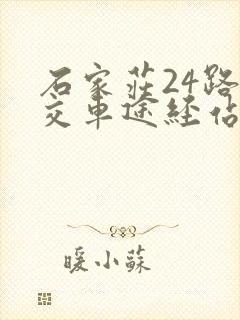 石家莊24路
交車途経佔
暖小蘇